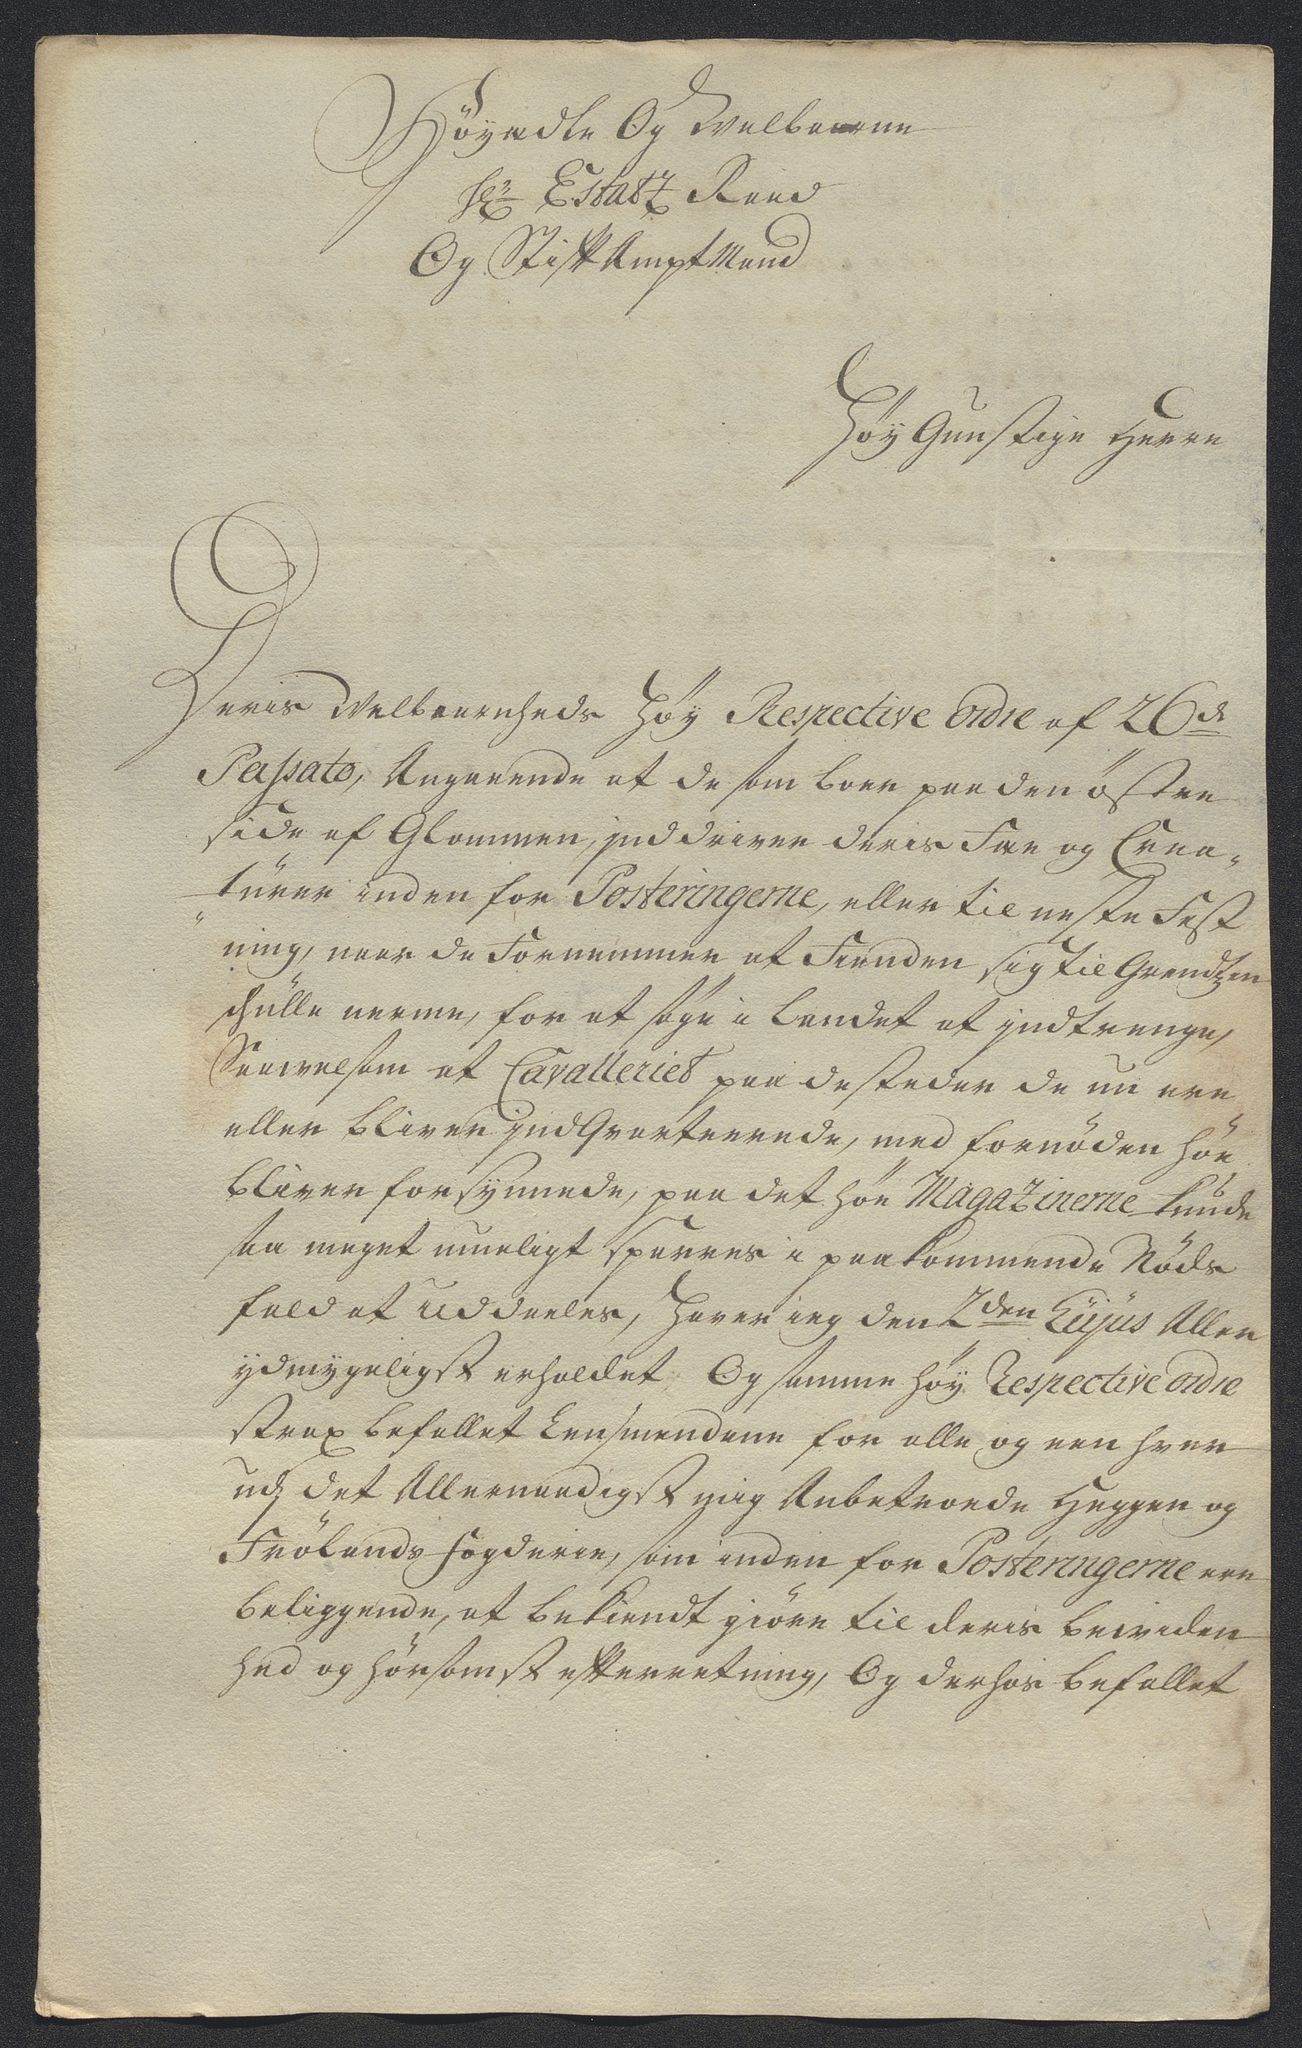 Høyædle Og Welbaarne
Hr: Estatz Raad
Og Stifft Ampt Mand
Høy Gunstige Herre
Deris Welbaarenheds Høy Respective Ordre af 26de
Passato, Angaaende at de som boer paa den østre
side af Glommen, jnddriver deris Fæe og Crea-
turer inden for Posteringerne, eller til neste Fest
ning, naar de Fornemmer at Fienden sig til Grendtzen
skulle nerme, for at søge i Landet at jndtrenge,
Saavelsom at Cavalleriet paa de steder de nu ere
eller bliver jndqvarteerede, med fornøden Høe
bliver forsynnede, paa det Høe Magazinerne kunde
saa meget mueligt sparres i paakommende Nøds
fald at uddeeles, haver ieg den 2den Hujus Aller
ydmygeligst erholdet Og samme høy Respective Ordre
strax befallet Lensmendene for alle og een hver
udj det Allernaadigst mig Anbetroede Heggen og
Frølands fogderie, som inden for Posteringerne ere
beliggende, at bekiendt giøre til deris beviden
hed og Hørsomst efterretning, Og derhos befallet